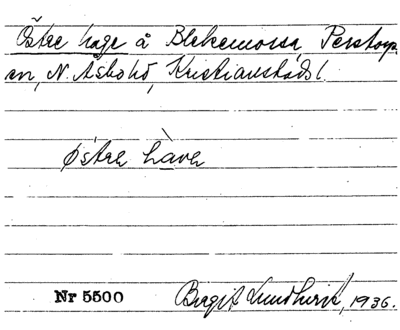 Östre hage å Blekemossa, Perstorps
sn, N. Åsbohd, Kristianstads l.
østrə havə
Nr 5500 Birgit Lundkvist, 1936.